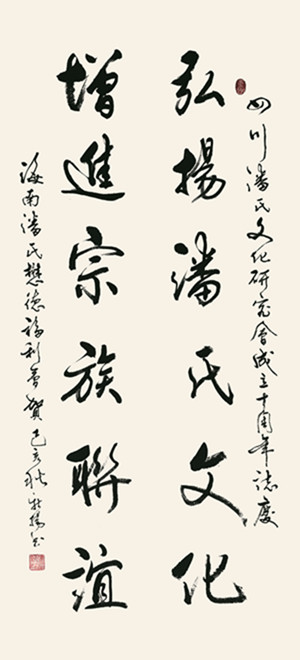 四川潘氏文化研究會成立十周年誌慶
弘揚潘氏文化
增進宗族聯誼
海南潘氏懋德福利會賀 己亥秋